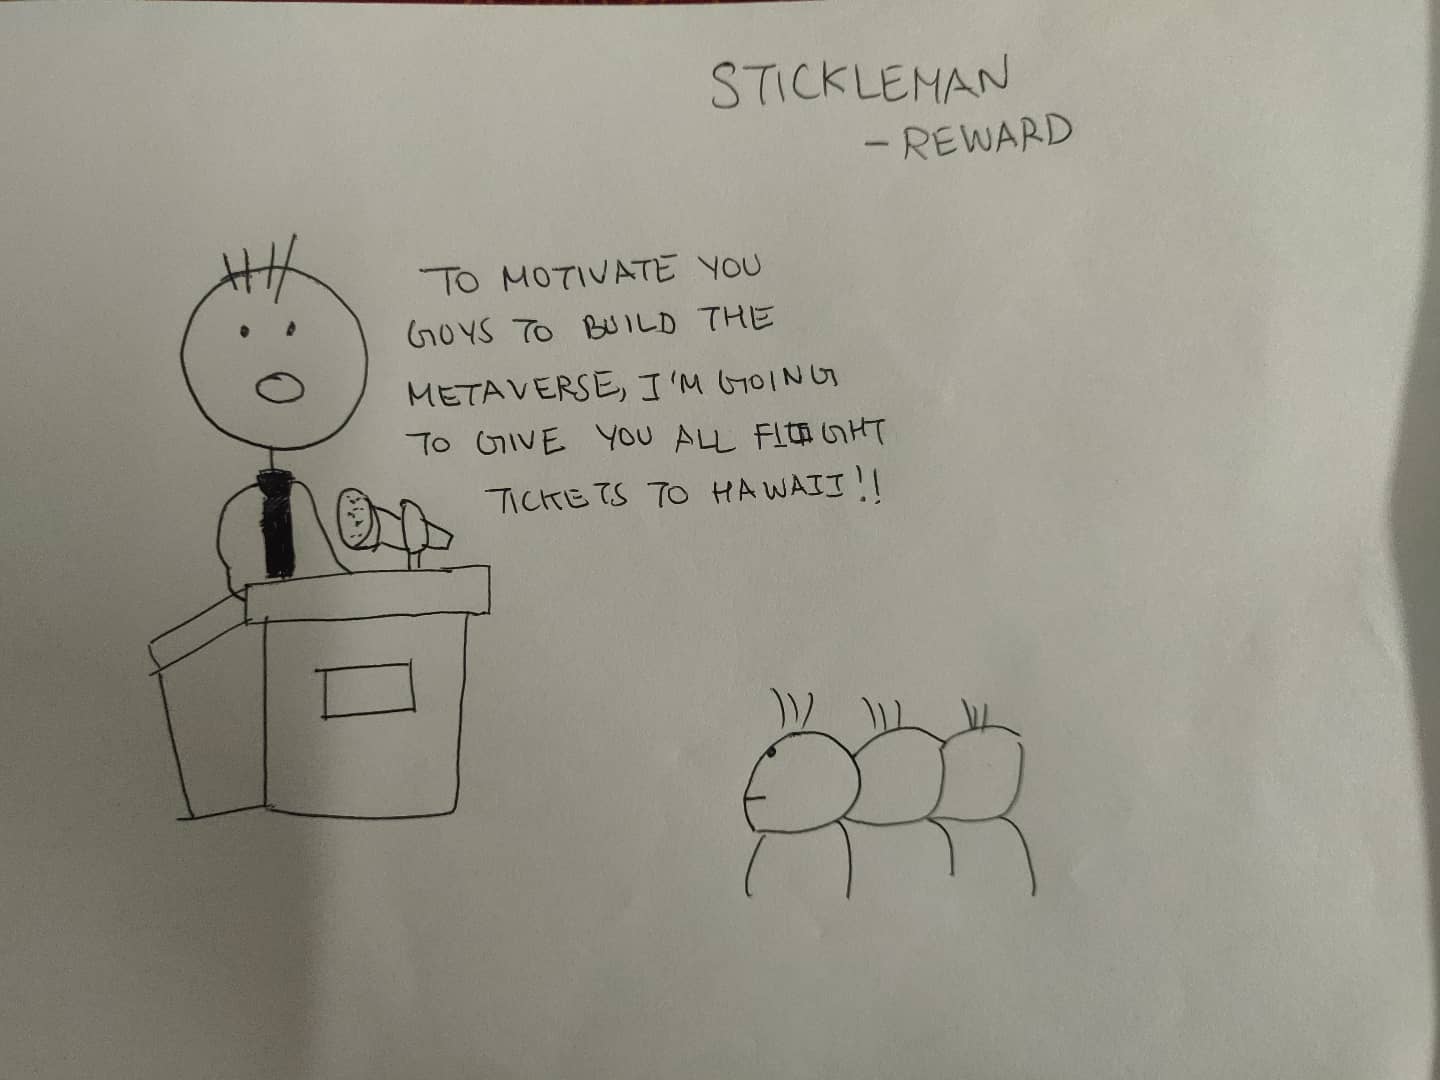 STICKLEMAN
- REWARD
TO MOTIVATE YOU
GUYS TO BUILD THE
METAVERSE, I'M GOING
TO GIVE YOU ALL FLIGHT
TICKETS TO HAWAII!!